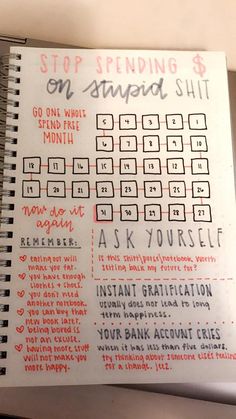 STOP SPENDING $
on stupid SHIT
GO ONE WHOLE
SPEND FREE
MONTH
5 4 3 2 1
6 7 8 9 10
15 14 13 12 11
18 17 16
19 20 21 22
now do it
again
REMEMBER:
eating out will
make you fat.
you have enough
clothes + shoes.
you don't need
another notebook.
you can buy that
new book later.
being bored is
not an excuse.
having more stuff
will not make you
more happy.
ASK YOURSELF
Is this shirt/purse/notebook worth
setting back my future for?
INSTANT GRATIFICATION
usually does not lead to long
term happiness.
YOUR BANK ACCOUNT CRIES
when it has less than five dollars.
try thinking about someone else's feelings
for a change, jeez.